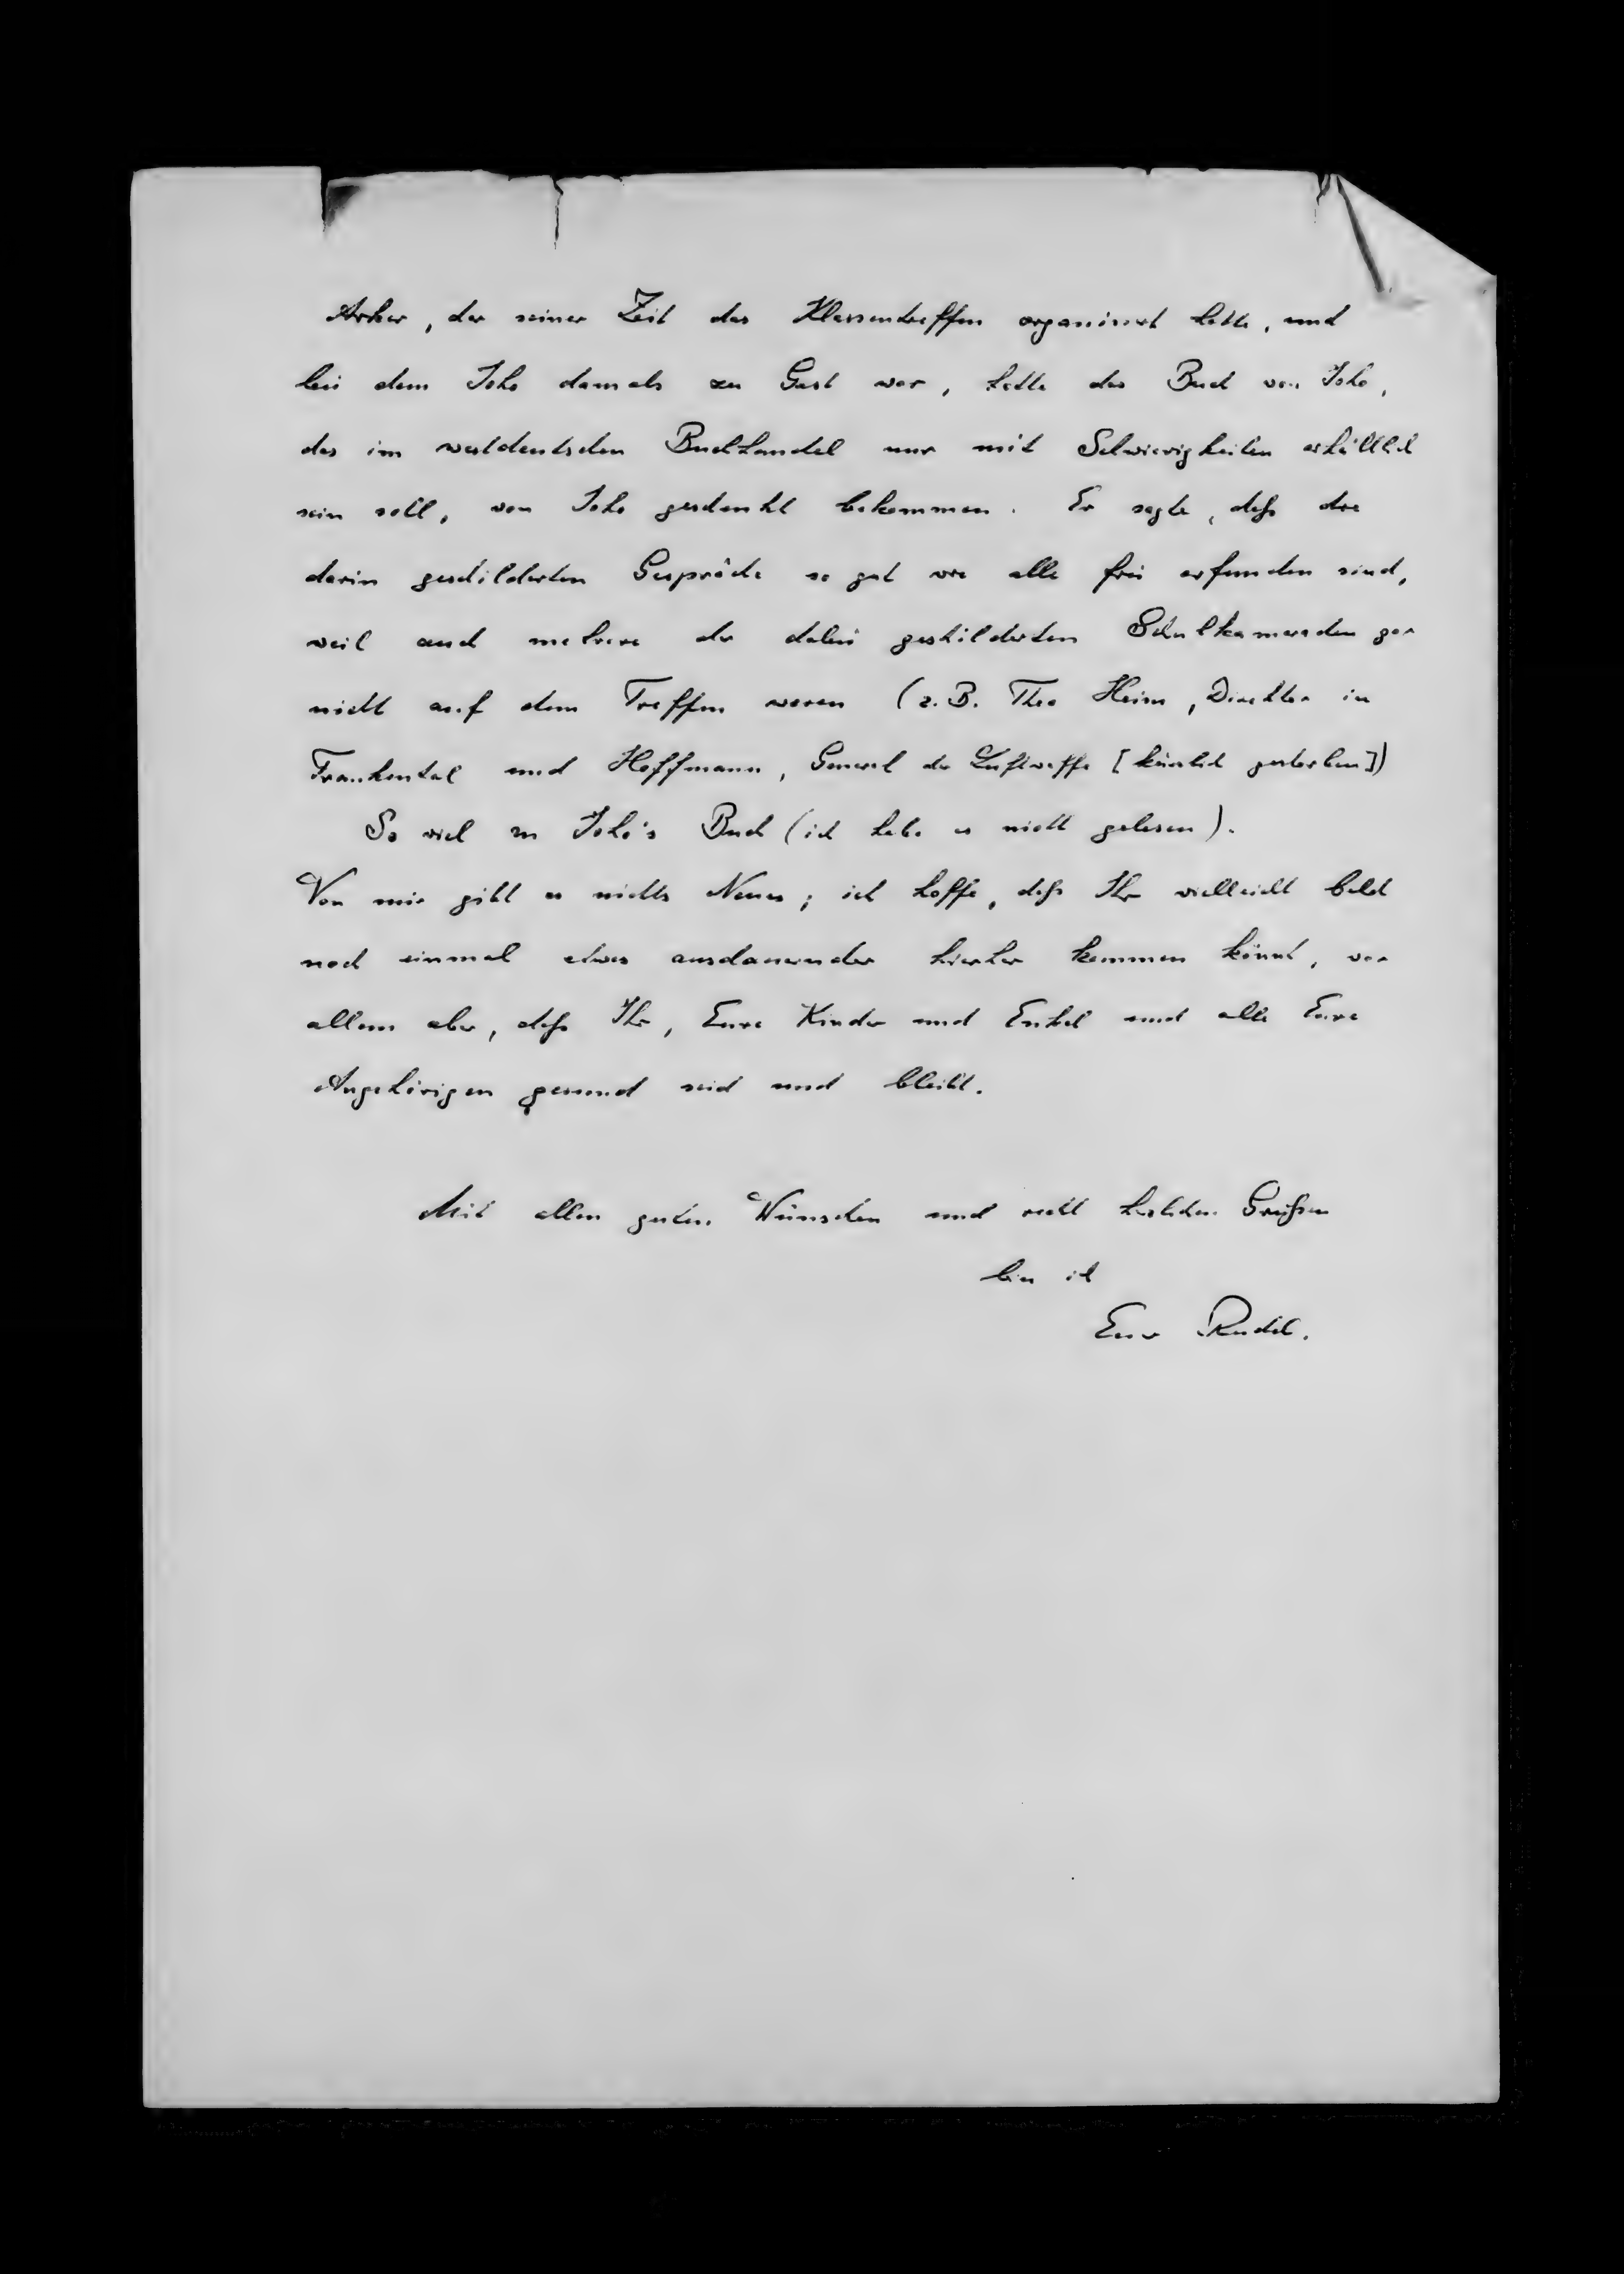 Arker, der seiner Zeit das Klassentreffen organisiert hatte, und
bei dem Joho damals zu Gast war, hatte das Buch von Joho,
das im westdeutschen Buchhandel nur mit Schwierigkeiten erhältlich
sein soll, von Joho geschenkt bekommen. Er sagte, daß die
darin geschilderten Gespräche so gut wie alle frei erfunden sind,
weil auch mehrere der dabei geschilderten Schulkameraden gar
nicht auf dem Treffen waren (z.B. Theo Heim, Direktor in
Frankental und Hoffmann, General der Luftwaffe [kürzlich gestorben])
So viel zu Joho's Buch (ich habe es nicht gelesen).
Von mir gibt es nichts Neues; ich hoffe, daß Ihr vielleicht bald
noch einmal etwas ausdauernder hierher kommen könnt, vor
allem aber, daß Ihr, Eure Kinder und Enkel und alle Eure
Angehörigen gesund seid und bleibt.
Mit allen guten Wünschen und recht herzlichen Grüßen
bin ich
Euer Rudil.